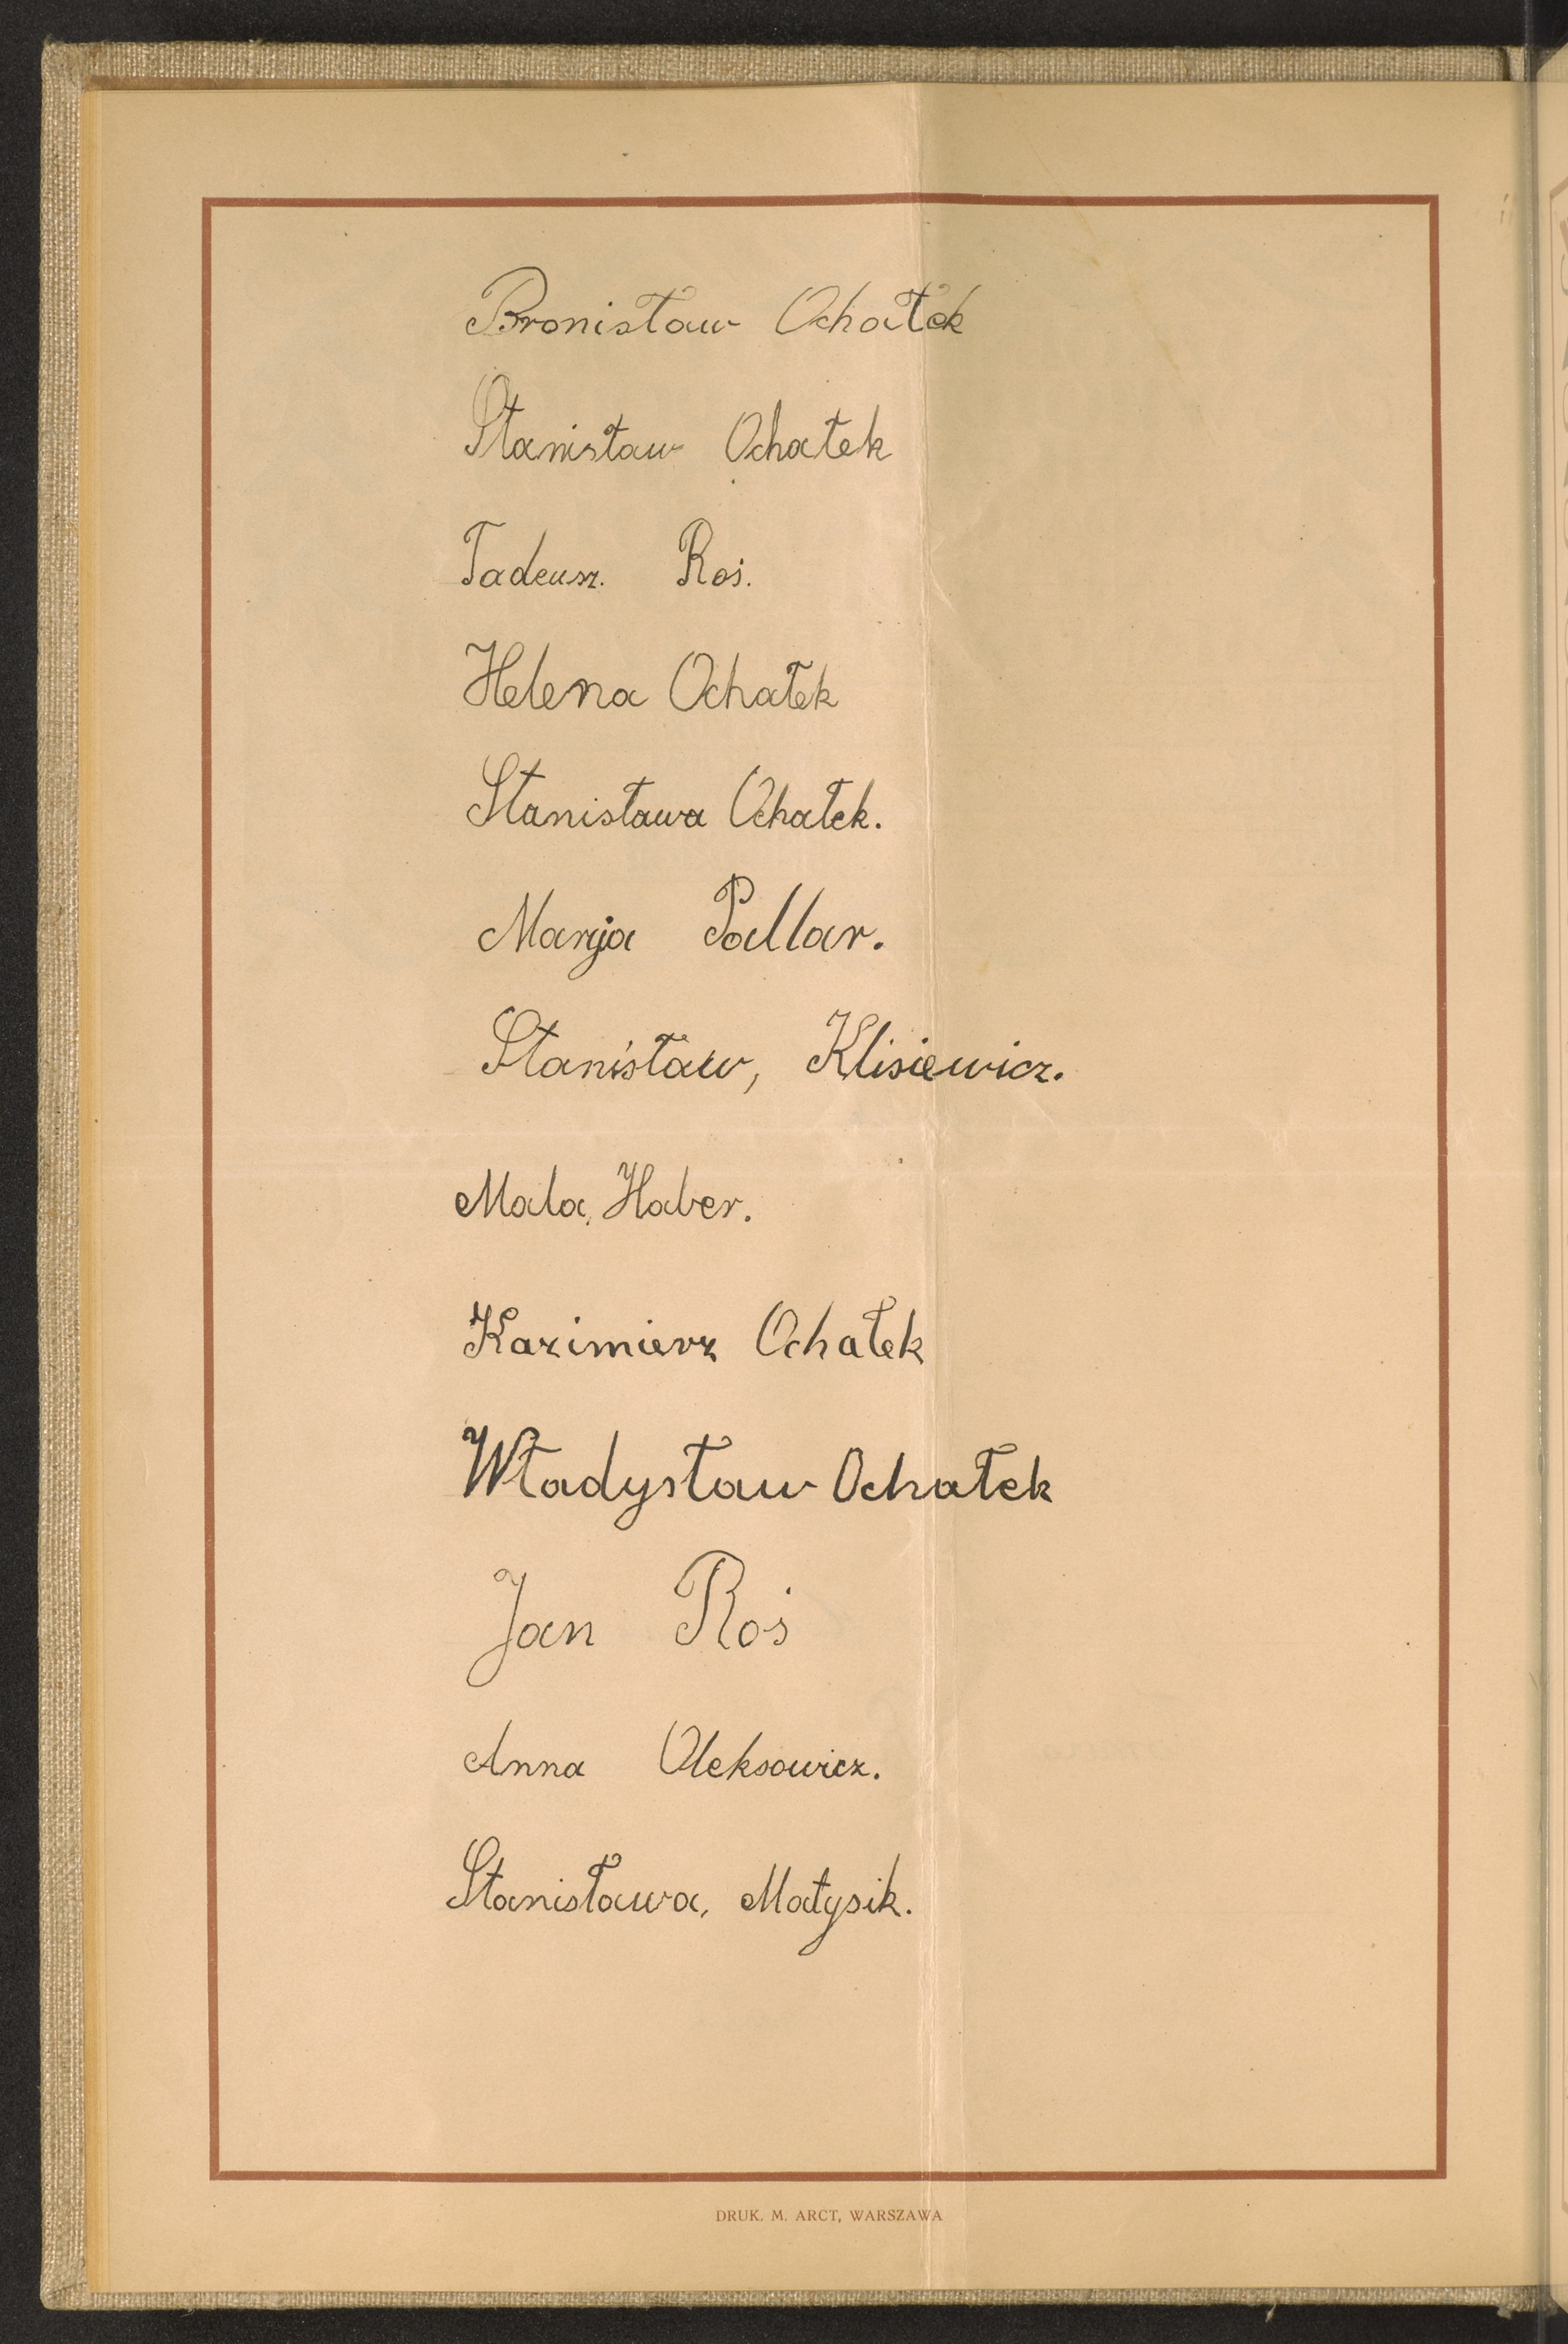 Bronisław Ochałek
Stanisław Ochałek
Tadeusz. Roś.
Helena Ochałek
Stanisława Ochałek.
Marja Pallar.
Stanisław, Klisiewicz.
Mala, Haber.
Kazimierz Ochałek
Władysław Ochałek
Jan Roś
Anna Oleksowicz.
Stanisława, Matysik.
DRUK. M. ARCT, WARSZAWA